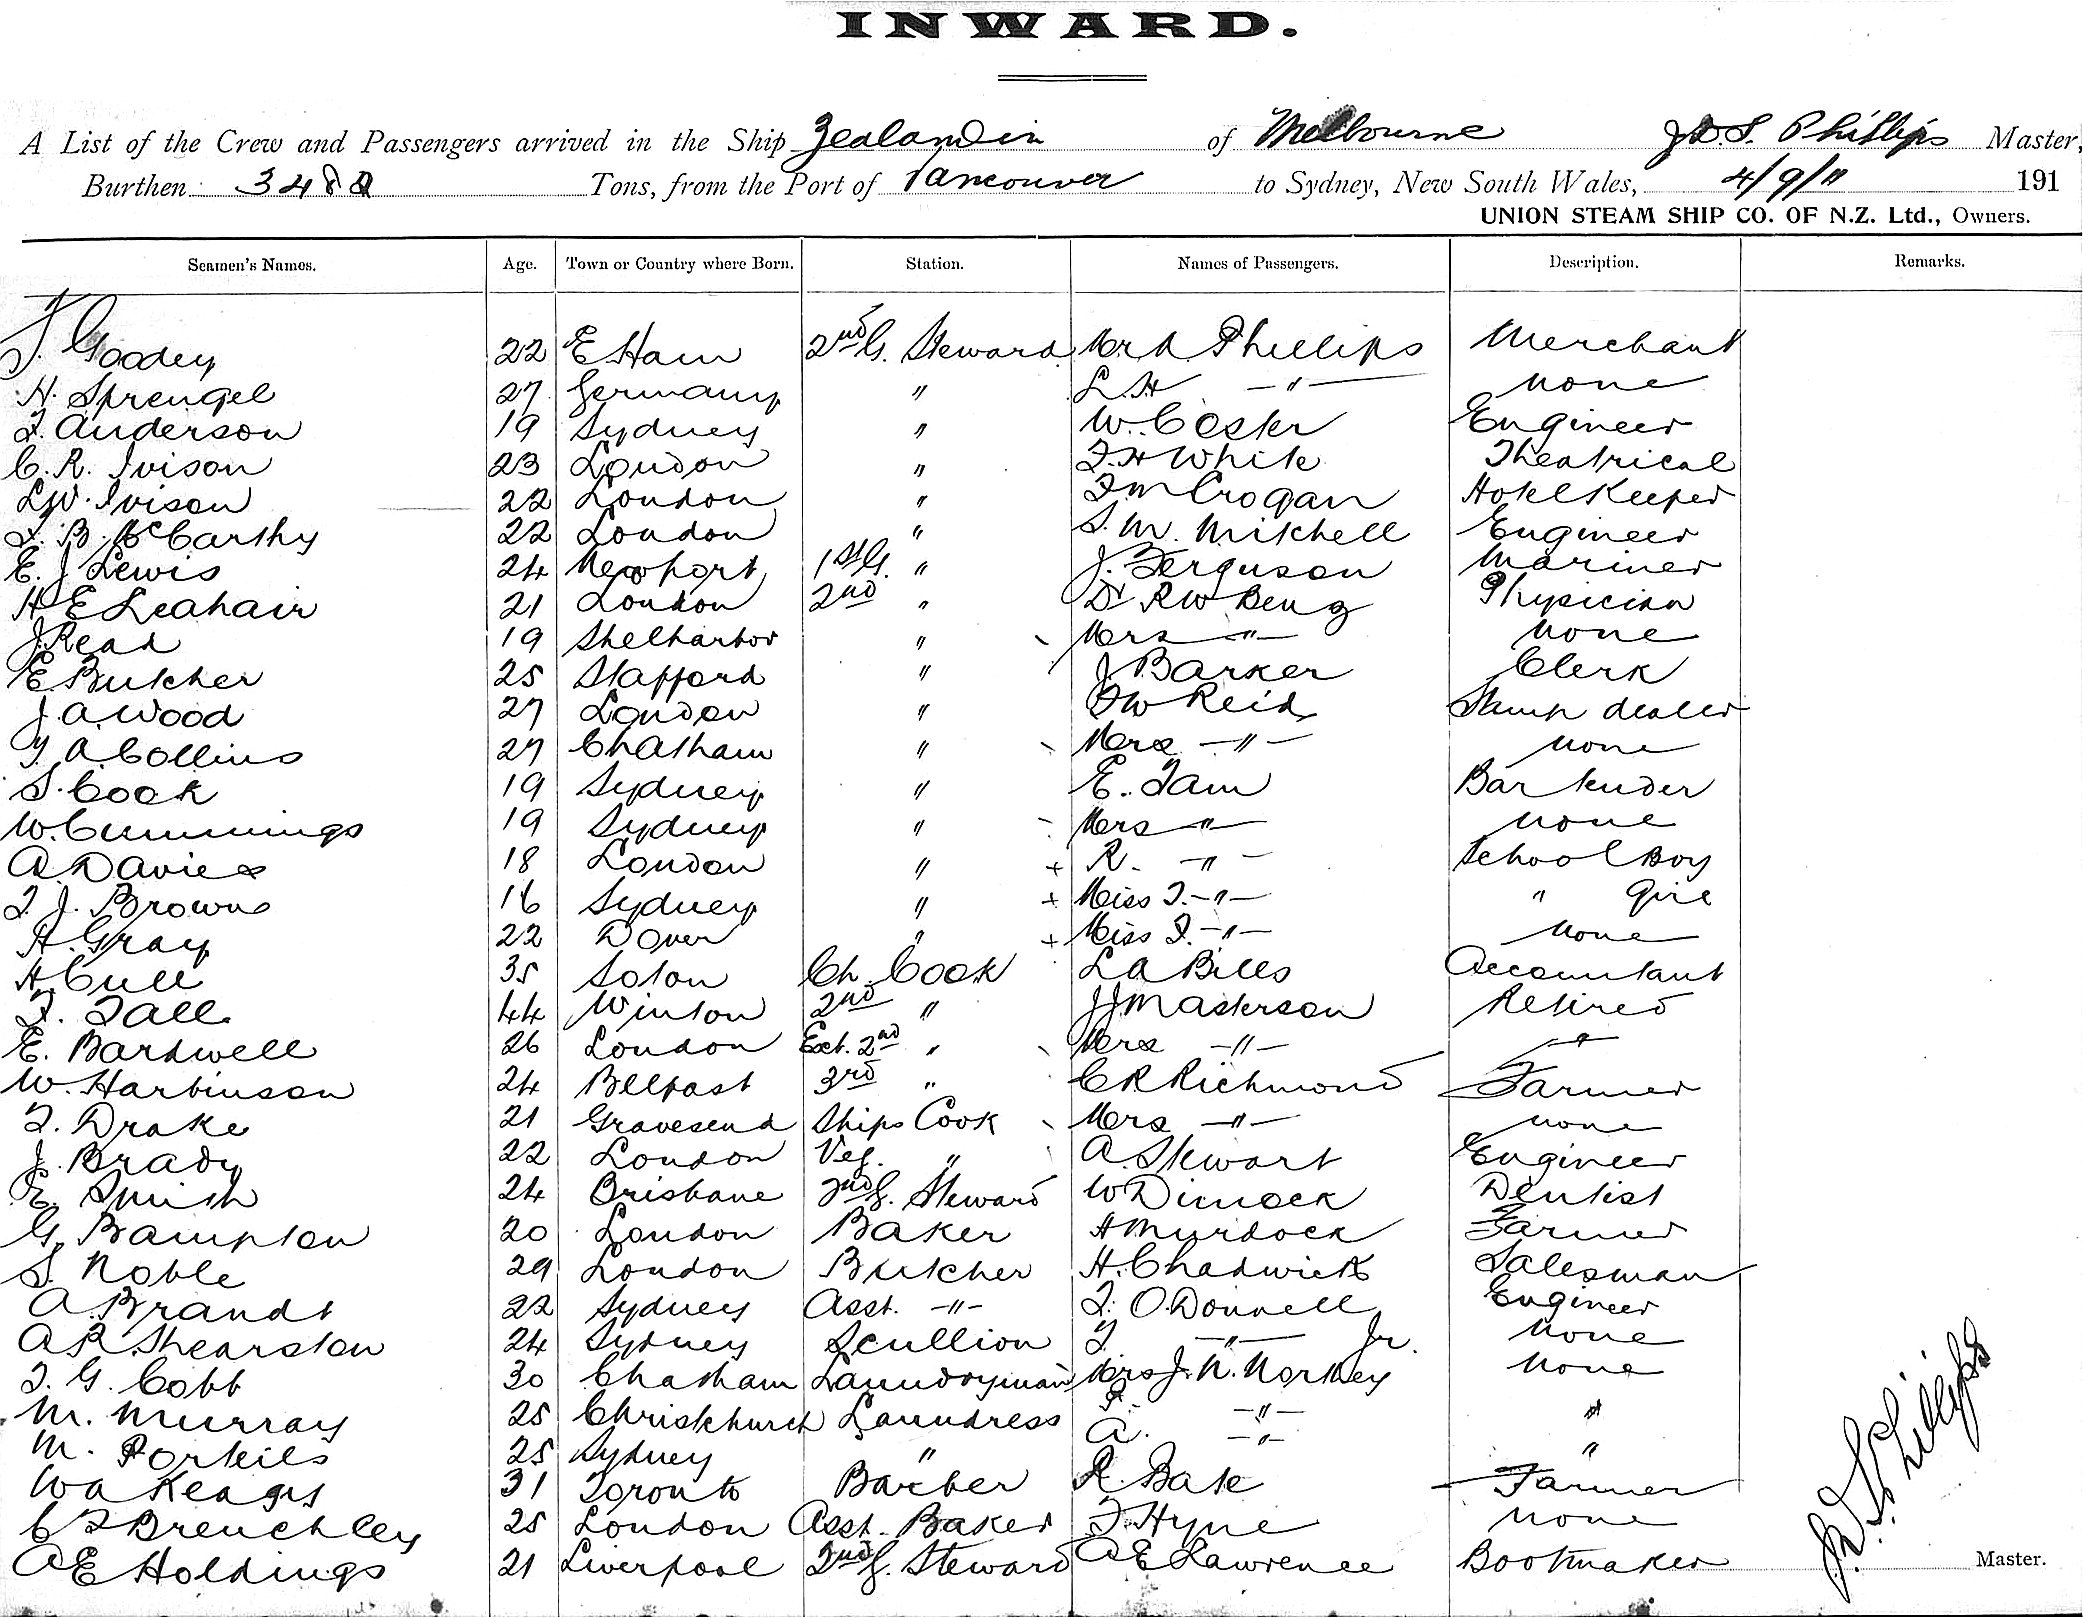 INWARD.
A List of the Crew and Passengers arrived in the Ship Zealandia of Melbourne J.D.S. Phillips Master,
Burthen 3480 Tons, from the Port of Vancouver to Sydney, New South Wales, 4/9/11 191
UNION STEAM SHIP CO. OF N.Z. Ltd., Owners.
Seamen's Names. Age. Town or Country where Born. Station. Names of Passengers. Description. Remarks.
J. Goodey 22 E Ham 2nd G. Steward Mr A Phillips Merchant
H. Sprengel 27 Germany " L.H —"— None
F. Anderson 19 Sydney " W. Coster Engineer
C. R. Ivison 23 London " F. H White Theatrical
L.W. Ivison 22 London " F M Crogan Hotel Keeper
J. B. McCarthy 22 London " S. M. Mitchell Engineer
E. J Lewis 24 Newport 1st G. " J. Ferguson Mariner
H E Leahair 21 London 2nd " Dr R W Benz Physician
J Read 19 Shelharbor " Mrs —"— None
E. Butcher 25 Stafford " J Barker Clerk
J. A. Wood 27 London " F W Reid Stamp dealer
A Collins 27 Chatham " Mrs —"— None
S. Cook 19 Sydney " E. Tam Bar tender
W. Cummings 19 Sydney " Mrs —"— None
A. Davies 18 London " + R. —"— School Boy
T. J. Browne 16 Sydney " + Miss I. —"— " Girl
H. Gray 22 Dover " + Miss I. —"— None
H Cull 35 Soton Ch. Cook L A Bills Accountant
F. Tall 44 Winton 2nd " J J Masterson Retired
E. Bardwell 26 London Ext. 2nd " Mrs —"— —"—
W. Harbinson 24 Belfast 3rd " C R Richmond Farmer
F. Drake 21 Gravesend Ships Cook Mrs —"— None
J. Brady 22 London Veg. " A. Stewart Engineer
E. Smith 24 Brisbane 2nd G. Steward W Dimock Dentist
G. Bampton 20 London Baker H Murdock Farmer
S. Noble 29 London Butcher H. Chadwick Salesman
A. Brandt 22 Sydney Asst. —"— T. O'Donnell Engineer
A R Shearston 24 Sydney Scullion T —"— Jr. None
T. G. Cobb 30 Chatham Laundryman Mrs J. N. Northey None
M. Murray 25 Christchurch Laundress —"— "
M. 25 Sydney " A. —"— "
W A Keags 31 Toronto Barber R. Bate Farmer
C F Brenchley 25 London Asst. Baker F. Hyne None
A E Holdings 21 Liverpool 2nd G. Steward A E Lawrence Bootmaker
J.D.S. Phillips Master.